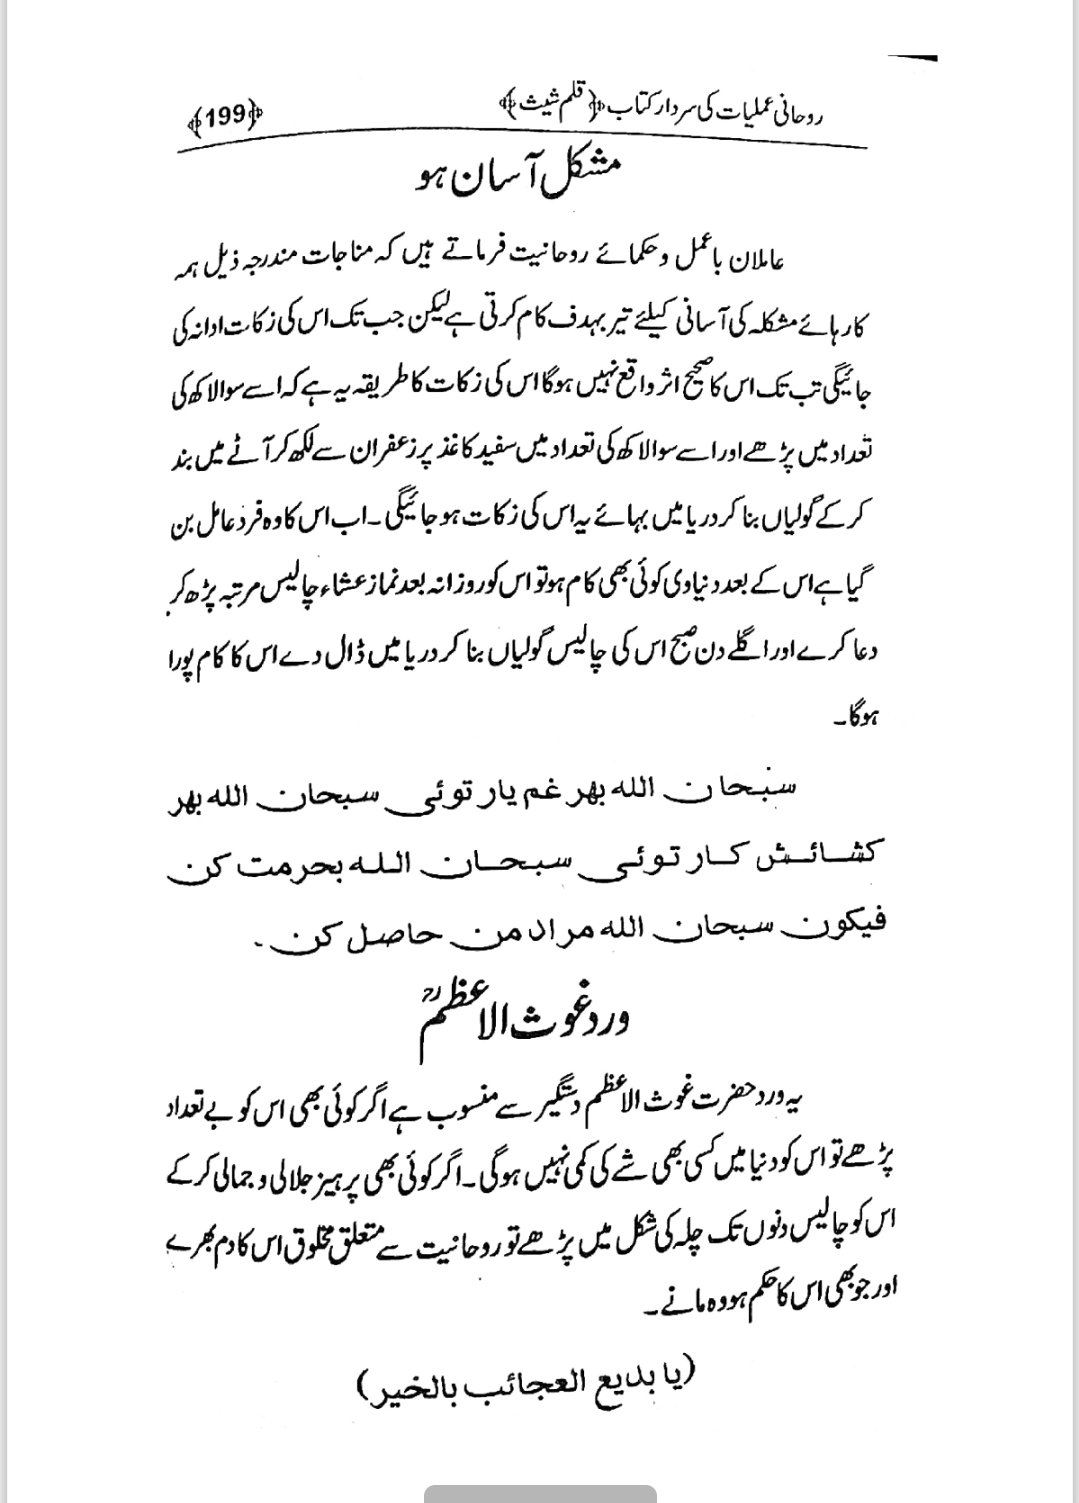 روحانی عملیات کی سردار کتاب ﴿قلم شیث﴾ ﴿199﴾
مشکل آسان ہو
عاملان باعمل و حکمائے روحانیت فرماتے ہیں کہ مناجات مندرجہ ذیل ہمہ
کارہائے مشکلہ کی آسانی کیلئے تیر بہدف کام کرتی ہے لیکن جب تک اس کی زکات ادا نہ کی
جائیگی تب تک اس کا صحیح اثر واقع نہیں ہوگا اس کی زکات کا طریقہ یہ ہے کہ اسے سوا لاکھ کی
تعداد میں پڑھے اور اسے سوا لاکھ کی تعداد میں سفید کاغذ پر زعفران سے لکھ کر آٹے میں بند
کر کے گولیاں بنا کر دریا میں بہائے یہ اس کی زکات ہو جائیگی ۔ اب اس کا وہ فرد عامل بن
گیا ہے اس کے بعد دنیاوی کوئی بھی کام ہو تو اس کو روزانہ بعد نماز عشاء چالیس مرتبہ پڑھ کر
دعا کرے اور اگلے دن صبح اس کی چالیس گولیاں بنا کر دریا میں ڈال دے اس کا کام پورا
ہوگا ۔
سبحان الله بهر غم یار توئی سبحان الله بهر
کشائش کار توئی سبحان الله بحرمت کن
فیکون سبحان الله مراد من حاصل کن ۔
ورد غوث الاعظمؒ
یہ ورد حضرت غوث الاعظم دستگیر سے منسوب ہے اگر کوئی بھی اس کو بے تعداد
پڑھے تو اس کو دنیا میں کسی بھی شے کی کمی نہیں ہوگی ۔ اگر کوئی بھی پرہیز جلالی و جمالی کر کے
اس کو چالیس دنوں تک چلہ کی شکل میں پڑھے تو روحانیت سے متعلق مخلوق اس کا دم بھرے
اور جو بھی اس کا حکم ہو وہ مانے ۔
(یا بدیع العجائب بالخیر)